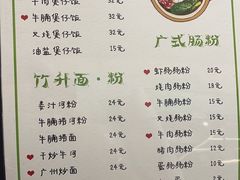 牛肉煲仔饭 32元
牛腩煲仔饭 32元
叉烧煲仔饭 32元
油盐煲仔饭 15元
竹升面·粉
姜汁河粉 24元
牛腩河粉 24元
牛腩捞面 24元
干炒牛河 24元
广州炒面 24元
广式肠粉
虾肠肠粉 20元
烧肉肠粉 18元
牛腩肠粉 15元
叉烧肠粉 15元
牛肉肠粉 15元
猪肉肠粉 12元
蛋肠肠粉